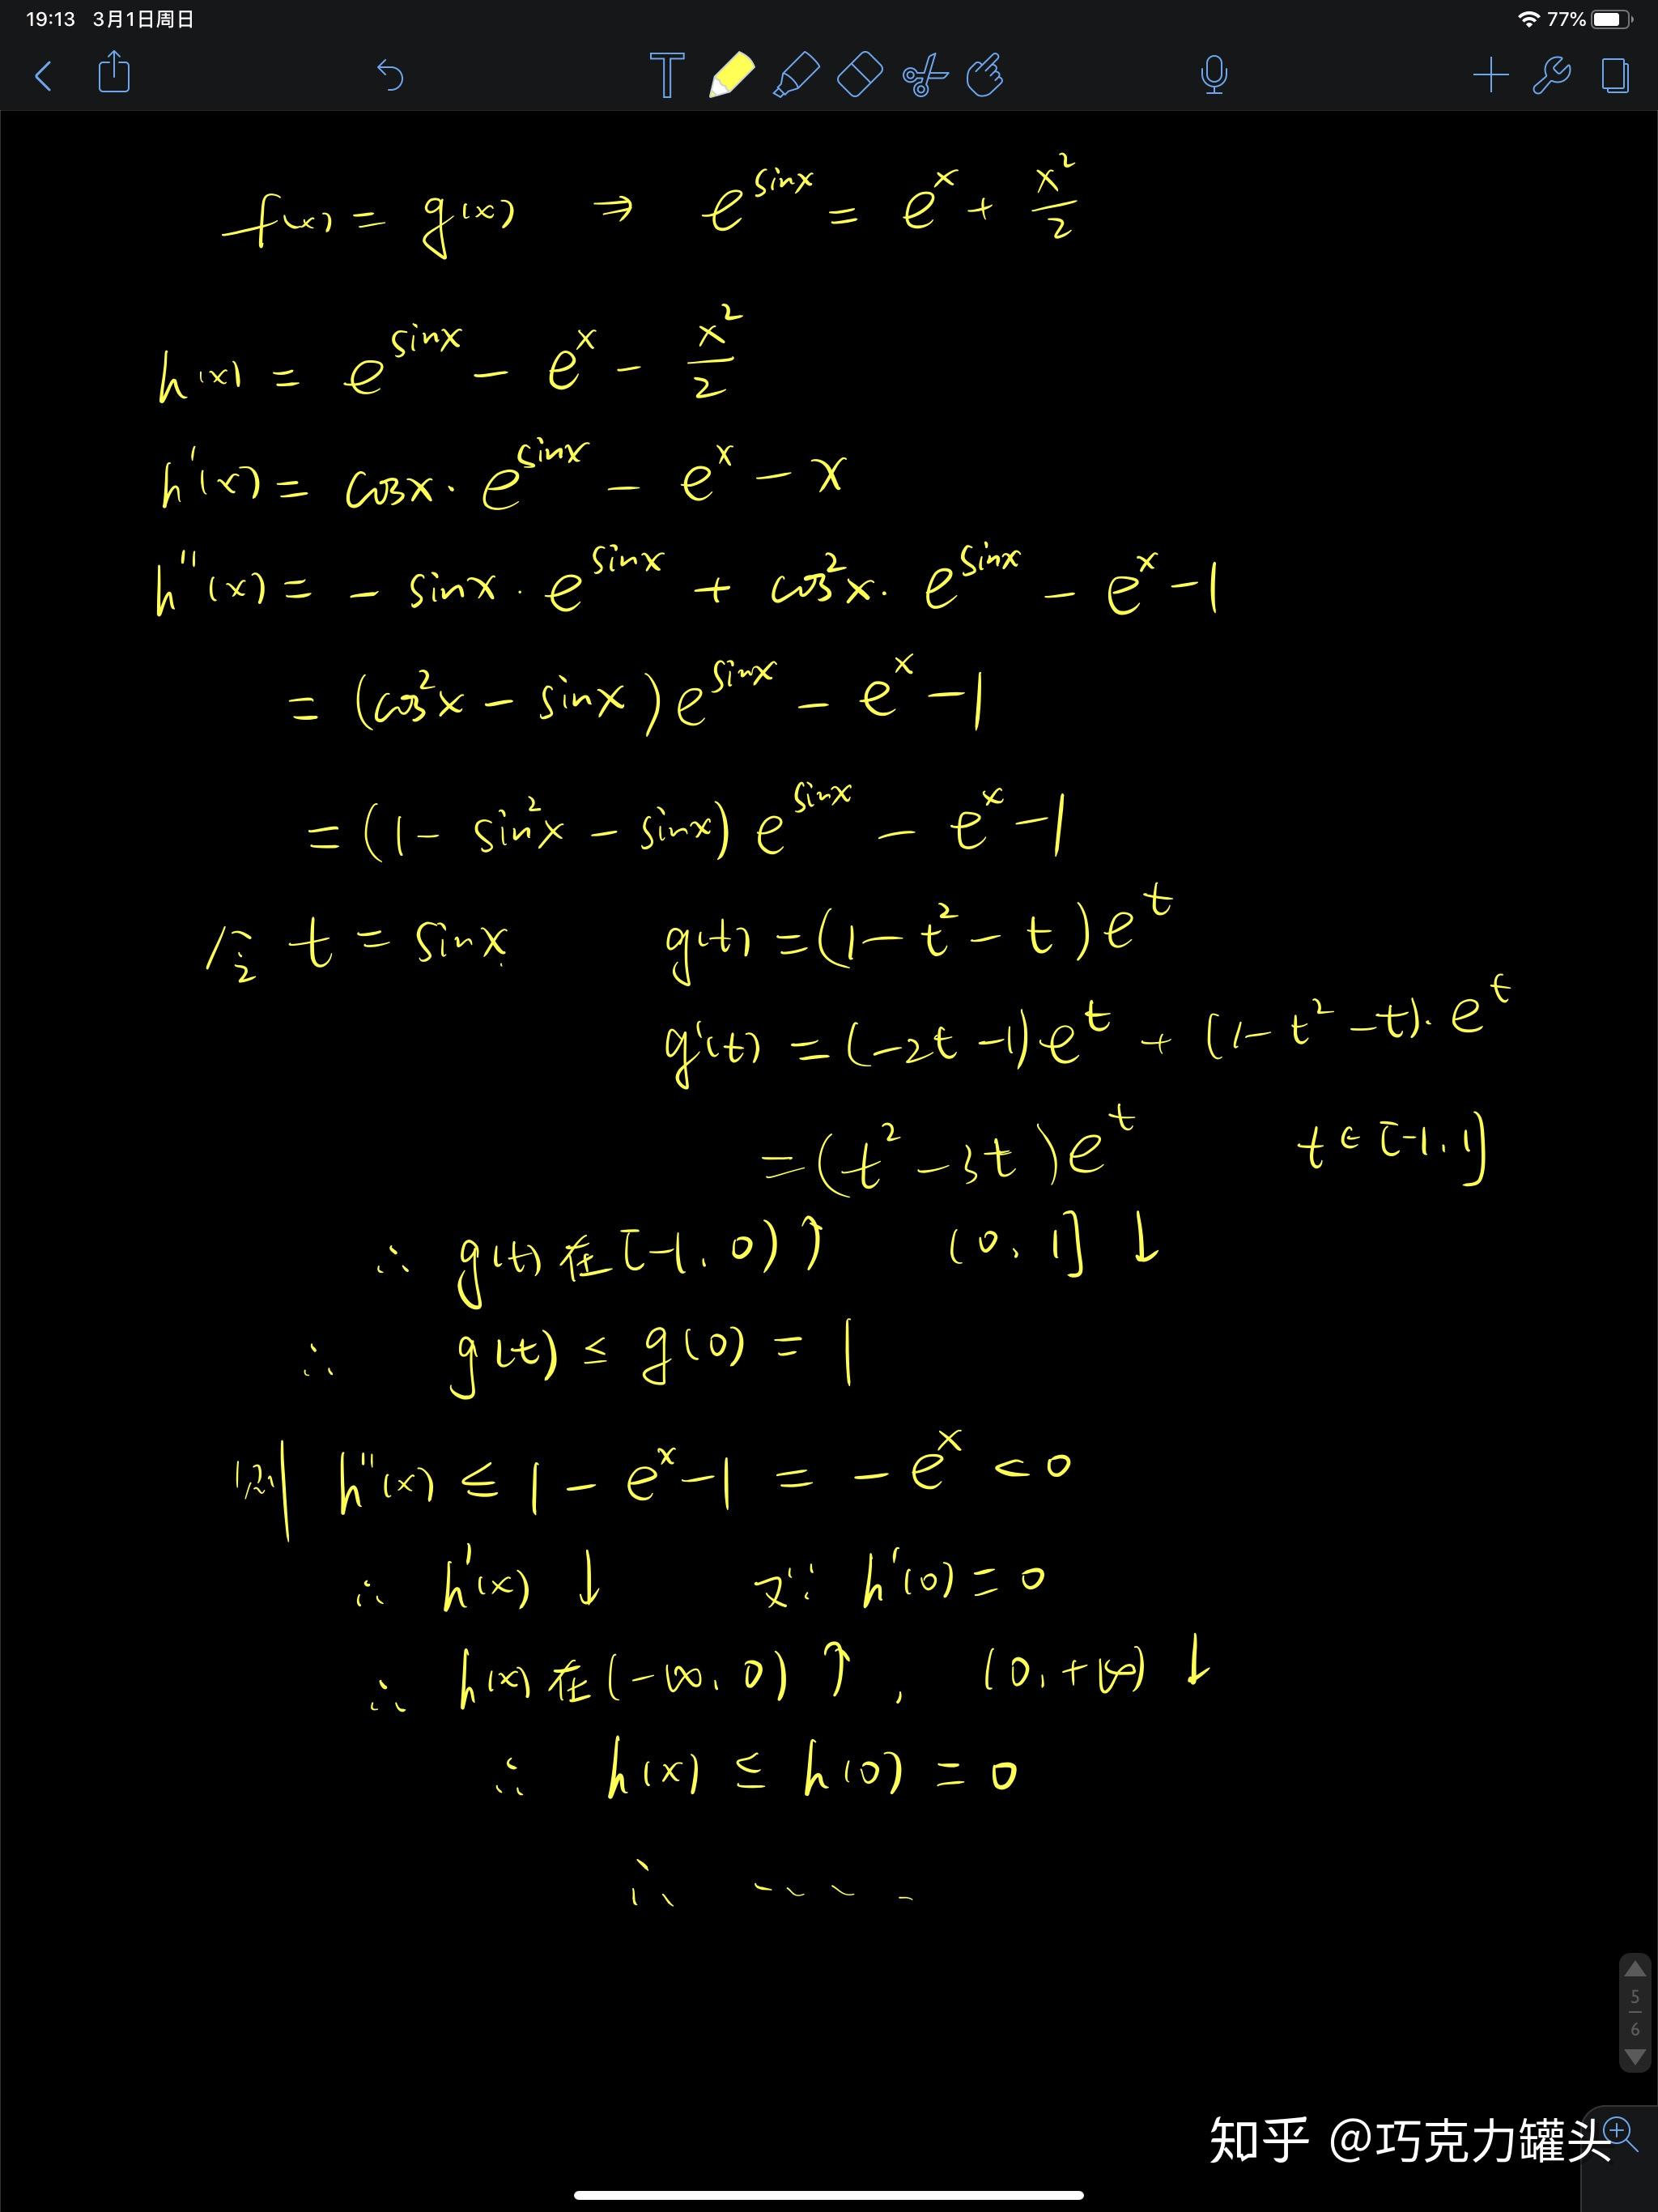 19:13 3月1日周日 77%
f(x) = g(x) ⇒ e^{sinx} = e^x + x²/2
h(x) = e^{sinx} - e^x - x²/2
h'(x) = cosx · e^{sinx} - e^x - x
h''(x) = - sinx · e^{sinx} + cos²x · e^{sinx} - e^x - 1
= (cos²x - sinx) e^{sinx} - e^x - 1
= (1 - sin²x - sinx) e^{sinx} - e^x - 1
令 t = sinx g(t) = (1 - t² - t) e^t
g'(t) = (-2t - 1) e^t + (1 - t² - t) · e^t
= (t² - 3t) e^t t ∈ [-1, 1]
∴ g(t) 在 [-1, 0) ↑ (0, 1] ↓
∴ g(t) ≤ g(0) = 1
则 h''(x) ≤ 1 - e^x - 1 = - e^x < 0
∴ h'(x) ↓ 又∵ h'(0) = 0
∴ h(x) 在 (-∞, 0) ↑ , (0, +∞) ↓
∴ h(x) ≤ h(0) = 0
∴ ----
5
6
知乎 @巧克力罐头